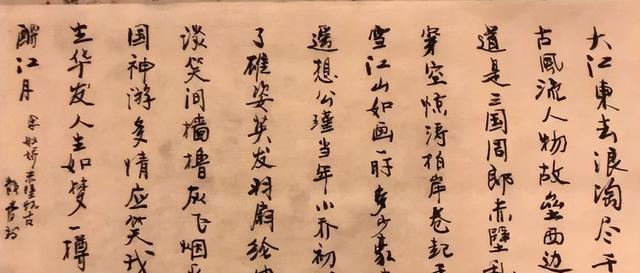 大江東去浪淘尽千
古風流人物故壘西边
道是三国周郎赤壁乱
穿空惊涛拍岸卷起千
雪江山如画一時多少豪
遥想公瑾当年小乔初
了雄姿英发羽扇纶
谈笑间樯橹灰飞烟
国神游多情应笑我
生华发人生如梦一樽
酹江月
念奴娇赤壁怀古